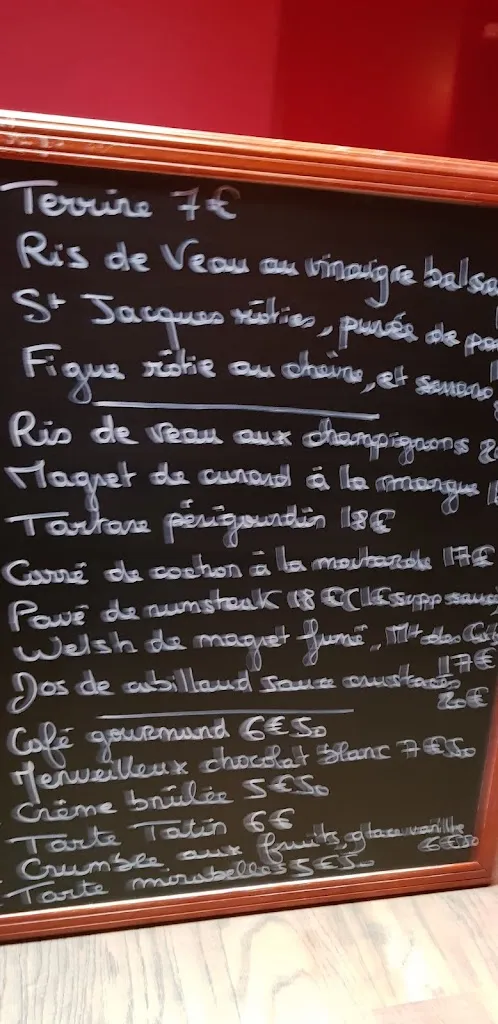 Terrine 7€
Ris de Veau au vinaigre balsa
St Jacques rôties, purée de pa
Figue rôtie au chèvre, et
Ris de veau aux champignons
Magret de canard à la mangue
Tartare périgourdin 18€
Carré de cochon à la moutarde 17€
Pavé de rumsteak 18€ (1€ supp sauce
Welsh de magret fumé, Mt des Cat
17€
Dos de cabillaud sauce crustacés
20€
Café gourmand 6€50
Merveilleux chocolat blanc 7€50
Crème brûlée 5€50
Tarte Tatin 6€
Crumble aux fruits, glace vanille
6€50
Tarte mirabelles 5€50